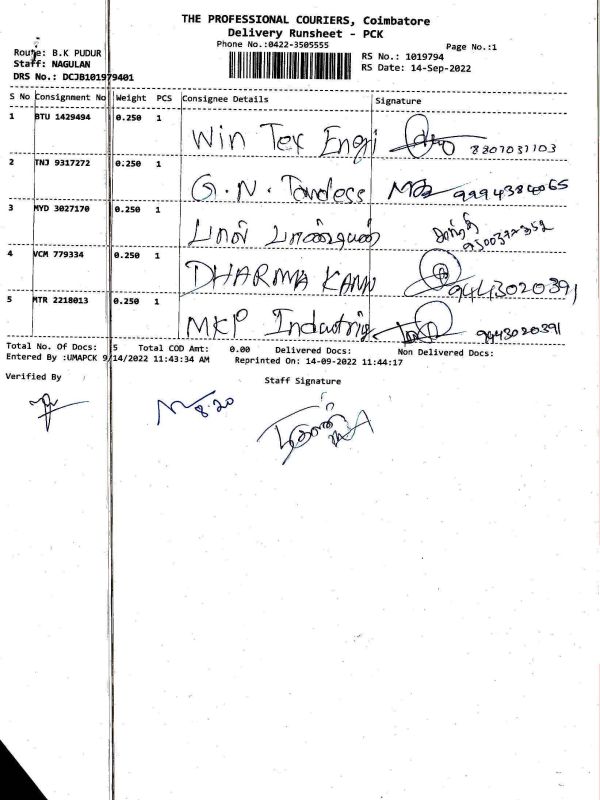 THE PROFESSIONAL COURIERS, Coimbatore
Delivery Runsheet - PCK
Phone No.:0422-3505555
Page No.:1
Route: B.K PUDUR
Staff: NAGULAN
DRS No.: DCJB101979401
RS No.: 1019794
RS Date: 14-Sep-2022
S No Consignment No Weight PCS Consignee Details Signature
1 BTU 1429494 0.250 1 Win Tex Engi 8207031103
2 TNJ 9317272 0.250 1 G.N. 9994384065
3 MYD 3027170 0.250 1 பால் பாண்டியன்
4 VCM 779334 0.250 1 DHARMA KANN 9443020391
5 MTR 2218013 0.250 1 MKP Industries 9443020391
Total No. Of Docs: 5 Total COD Amt: 0.00 Delivered Docs: Non Delivered Docs:
Entered By :UMAPCK 9/14/2022 11:43:34 AM Reprinted On: 14-09-2022 11:44:17
Verified By
Staff Signature
8.20